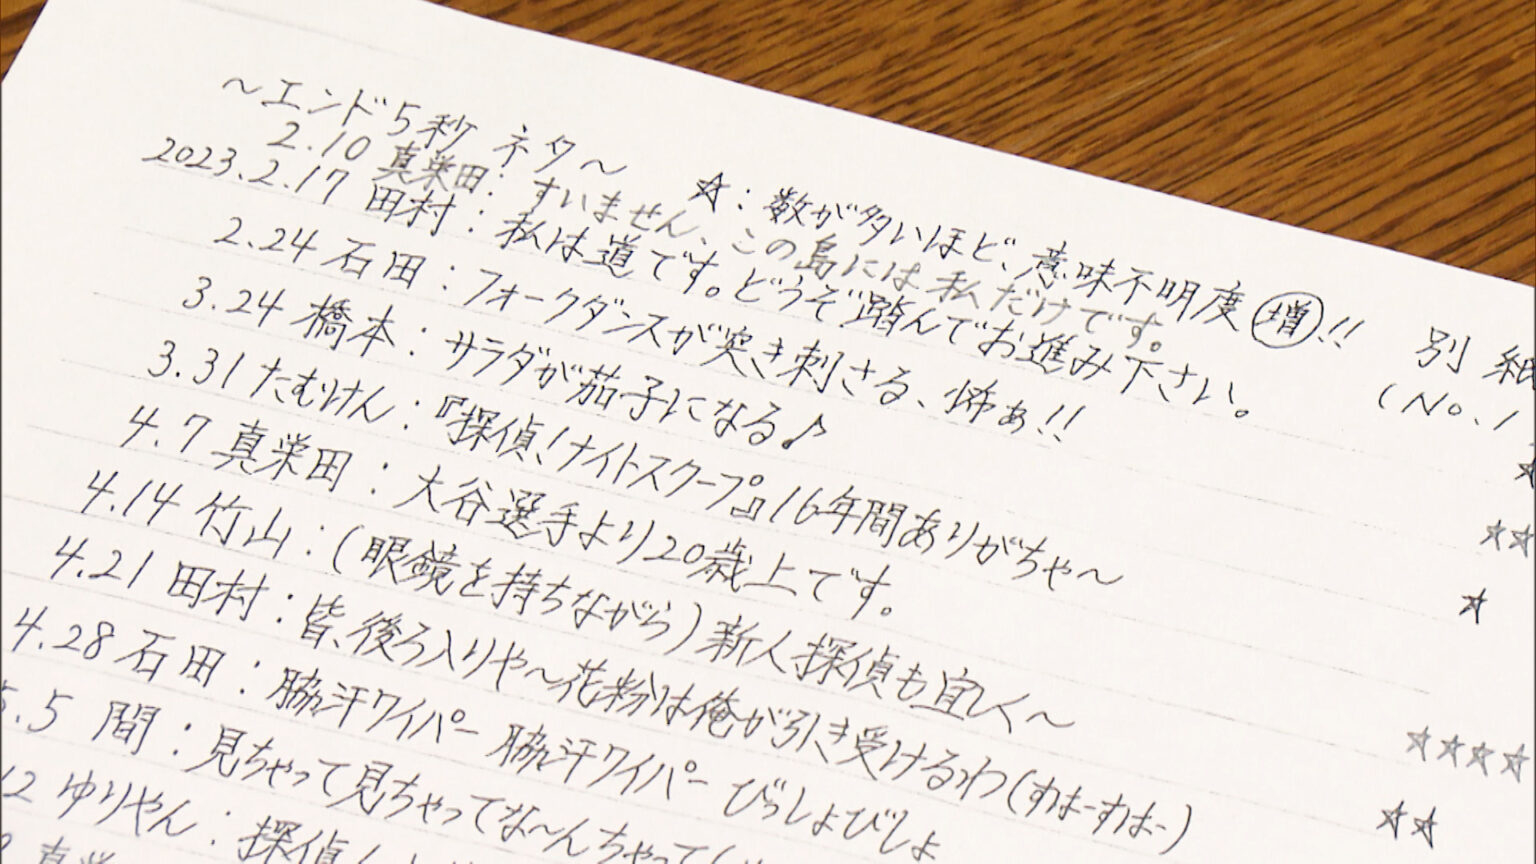 〜エンド5秒 ネタ〜 ☆:数が多いほど、意味不明度 増!! 別紙
(No.1
2.10 真栄田:すいません、この島には私だけです。
2023.2.17 田村:私は道です。どうぞ踏んでお進み下さい。
2.24 石田:フォークダンスが突き刺さる、怖ぁ!!
3.24 橋本:サラダが茄子になる♪
3.31 たむけん:『探偵!ナイトスクープ』16年間ありがちゃ〜 ☆☆
4.7 真栄田:大谷選手より20歳上です。 ☆
4.14 竹山:(眼鏡を持ちながら)新人探偵も宜しく〜
4.21 田村:皆、後ろ入りや〜花粉は俺が引き受けるわ(すはーすはー) ☆☆☆☆
4.28 石田:脇汗ワイパー 脇汗ワイパー びっしょびしょ ☆☆
5.5 間:見ちゃって見ちゃってな〜んちゃって
12 ゆりやん:探偵
真栄